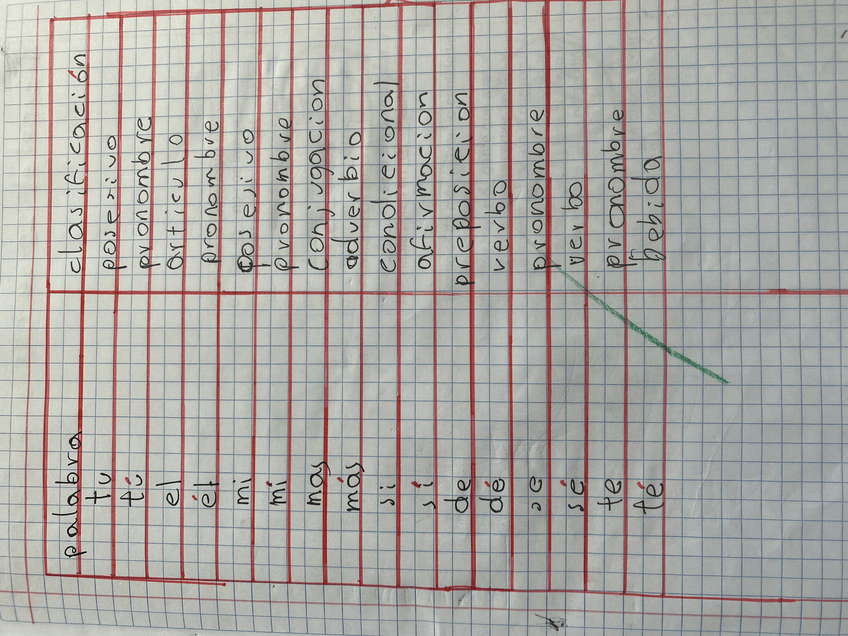 palabra clasificación
tu posesivo
tú pronombre
el articulo
él pronombre
mi posesivo
mí pronombre
mas conjugacion
más adverbio
si condicional
sí afirmacion
de preposicion
dé verbo
se pronombre
sé verbo
te pronombre
té bebida